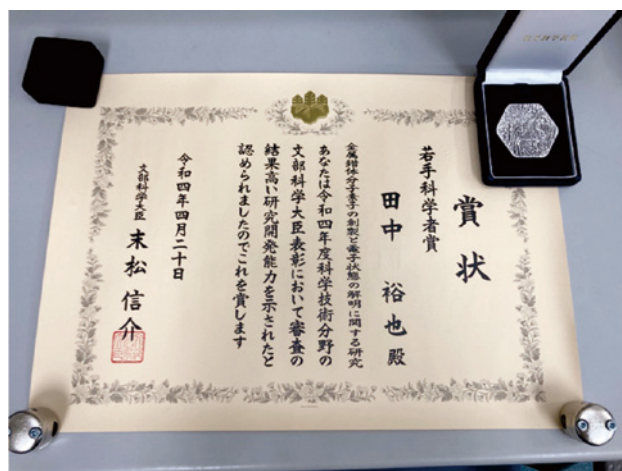 賞状
若手科学者賞
田中 裕也 殿
金属錯体分子素子の創製と電子状態の解明に関する研究
あなたは令和四年度科学技術分野の
文部科学大臣表彰において審査の
結果高い研究開発能力を示されたと
認められましたのでこれを賞します
令和四年四月二十日
文部科学大臣 末松 信介